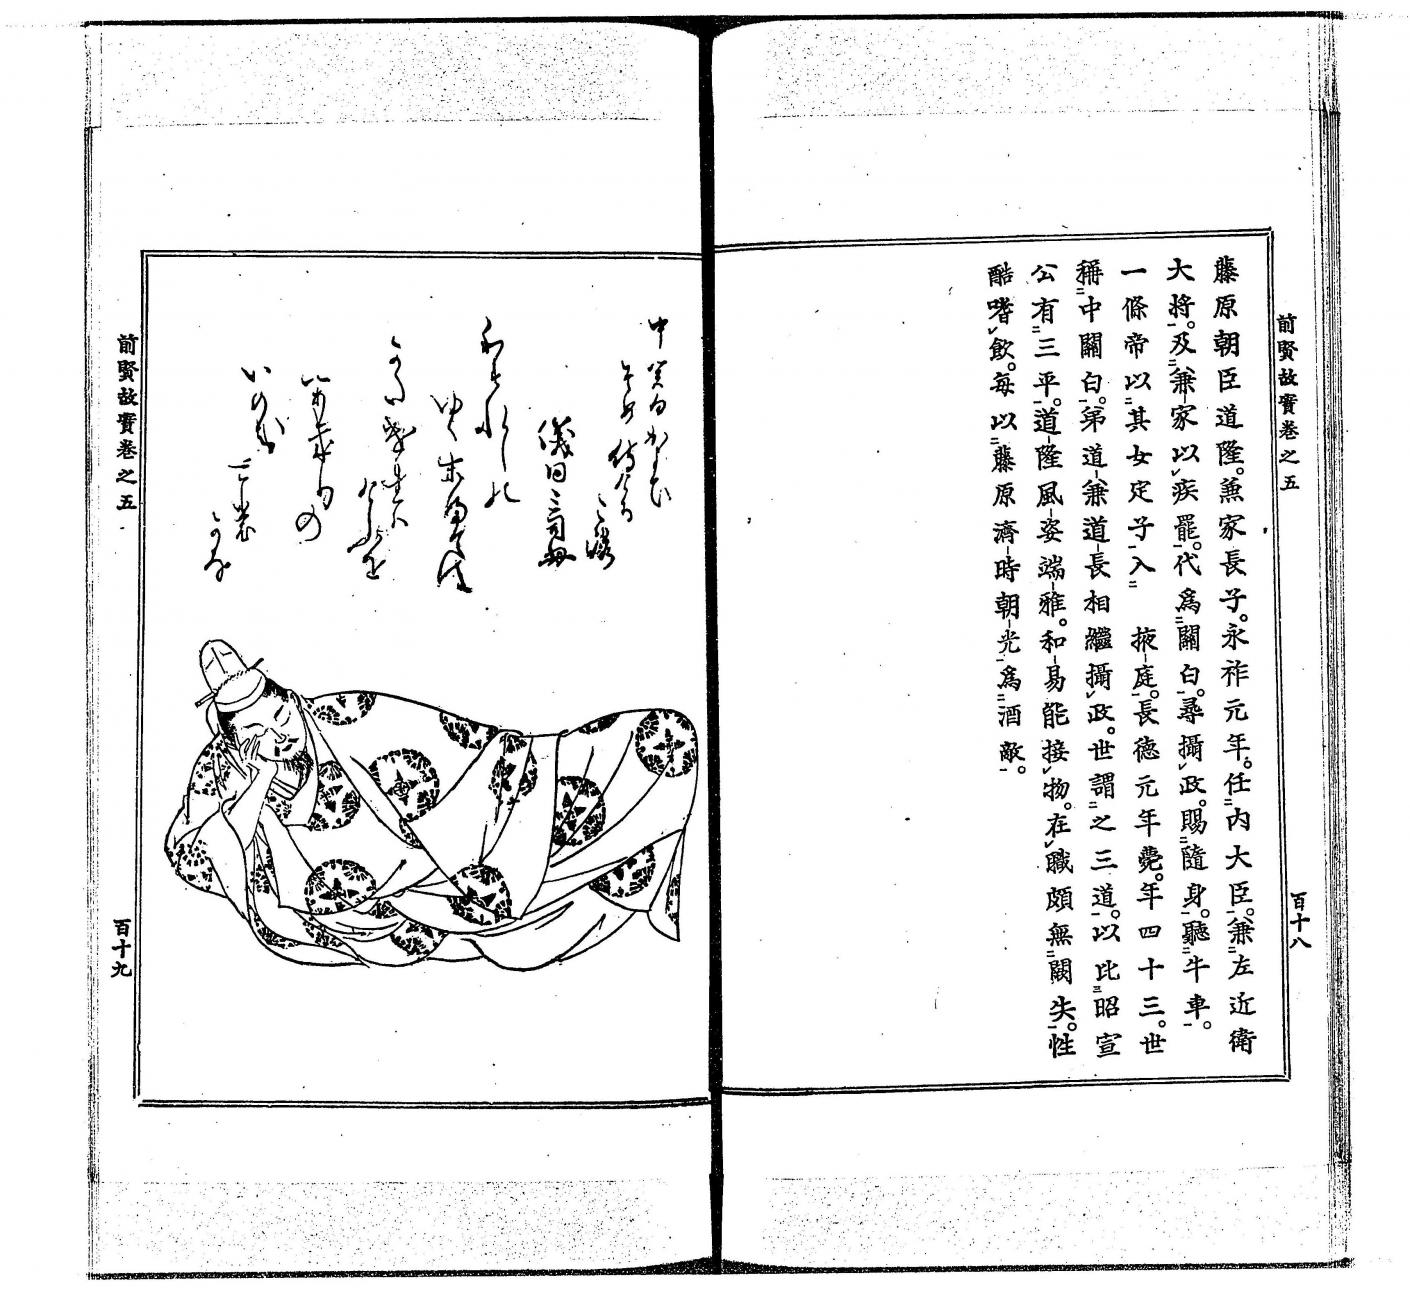 前賢故實卷之五
藤原朝臣道隆。兼家長子。永祚元年。任内大臣。兼左近衛
大將。及兼家以疾罷。代爲關白。尋攝政。賜隨身。聽牛車。
一條帝以其女定子入　掖庭。長德元年薨。年四十三。世
稱中關白。弟道兼道長相繼攝政。世謂之三道。以比昭宣
公有三平。道隆風姿端雅。和易能接物。在職頗無闕失。性
酷嗜飲。每以藤原濟時朝光爲酒敵。
百十八
中関白かよひ
そめ侍ける
ころ
儀同三司母
わすれしの
ゆく末まては
けふを
いのち
前賢故實卷之五
百十九